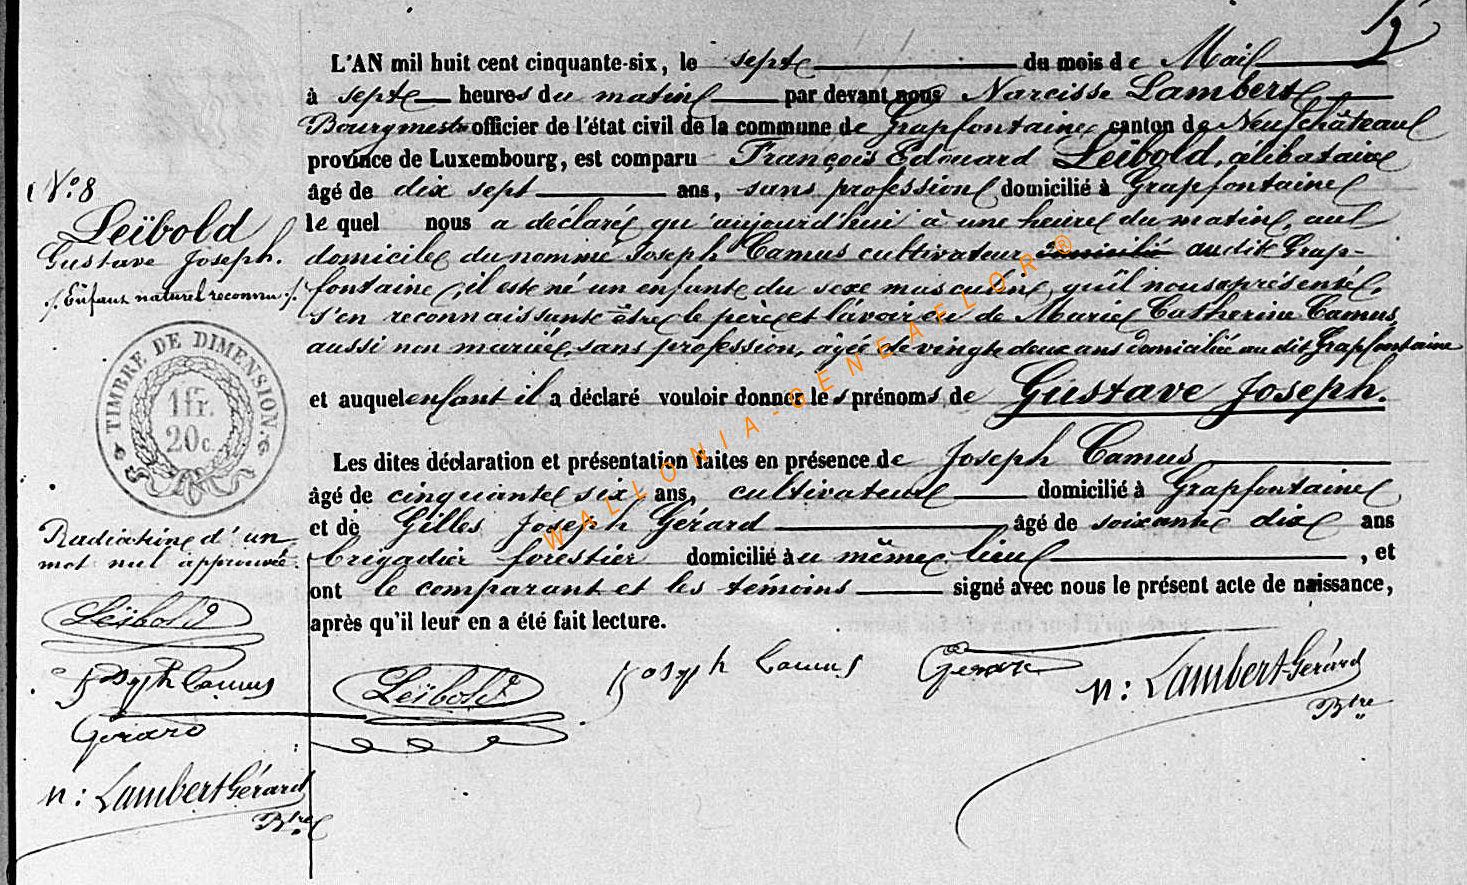 L'AN mil huit cent cinquante-six, le sept du mois de Mai
à sept heures du matin par devant nous Narcisse Lambert
Bourgmestre officier de l'état civil de la commune de Grapfontaine canton de Neufchâteau
province de Luxembourg, est comparu François Edouard Leïbold, célibataire
âgé de dix sept ans, sans profession domicilié à Grapfontaine
le quel nous a déclaré qu'aujourd'hui à une heure du matin, au
domicile du nommé Joseph Camus cultivateur domicilié audit Grap-
fontaine, il est né un enfant du sexe masculin, qu'il nous a présenté,
s'en reconnaissant être le père et l'avoir eu de Marie Catherine Camus,
aussi non mariée, sans profession, âgée de vingt deux ans domiciliée au dit Grapfontaine
et auquel enfant il a déclaré vouloir donner les prénoms de Gustave Joseph.
Les dites déclaration et présentation faites en présence de Joseph Camus
âgé de cinquante six ans, cultivateur domicilié à Grapfontaine
et de Gilles Joseph Gérard âgé de soixante dix ans
brigadier forestier domicilié au même lieu, et
ont le comparant et les témoins signé avec nous le présent acte de naissance,
après qu'il leur en a été fait lecture.
Leïbold
Joseph Camus
Gerard
N: Lambert Gérard
Btre
N.o 8
Leïbold
Gustave Joseph.
Enfant naturel reconnu
TIMBRE DE DIMENSION.
1fr.
20c.
Radiation d'un
mot nul approuvée.
Leïbold
Joseph Camus
Gerard
N: Lambert Gérard
Btre
WALLONIA-GENEAFLOR®